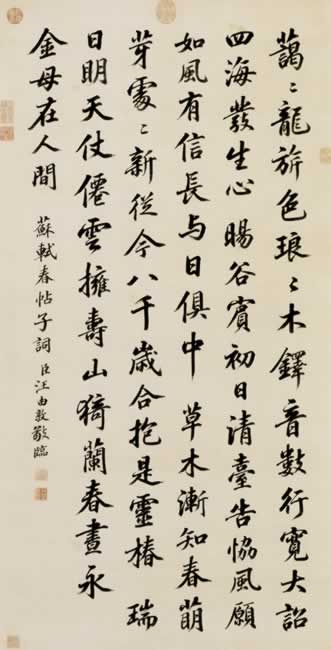 藹〻龍旂色琅〻木鐸音數行寛大詔
四海發生心暘谷賓初日清臺告恊風願
如風有信長与日俱中 草木漸知春萌
芽處〻新從今八千歲合抱是靈椿 瑞
日明天仗僊雲擁壽山猗蘭春晝永
金母在人間
蘇軾春帖子詞 臣汪由敦敬臨